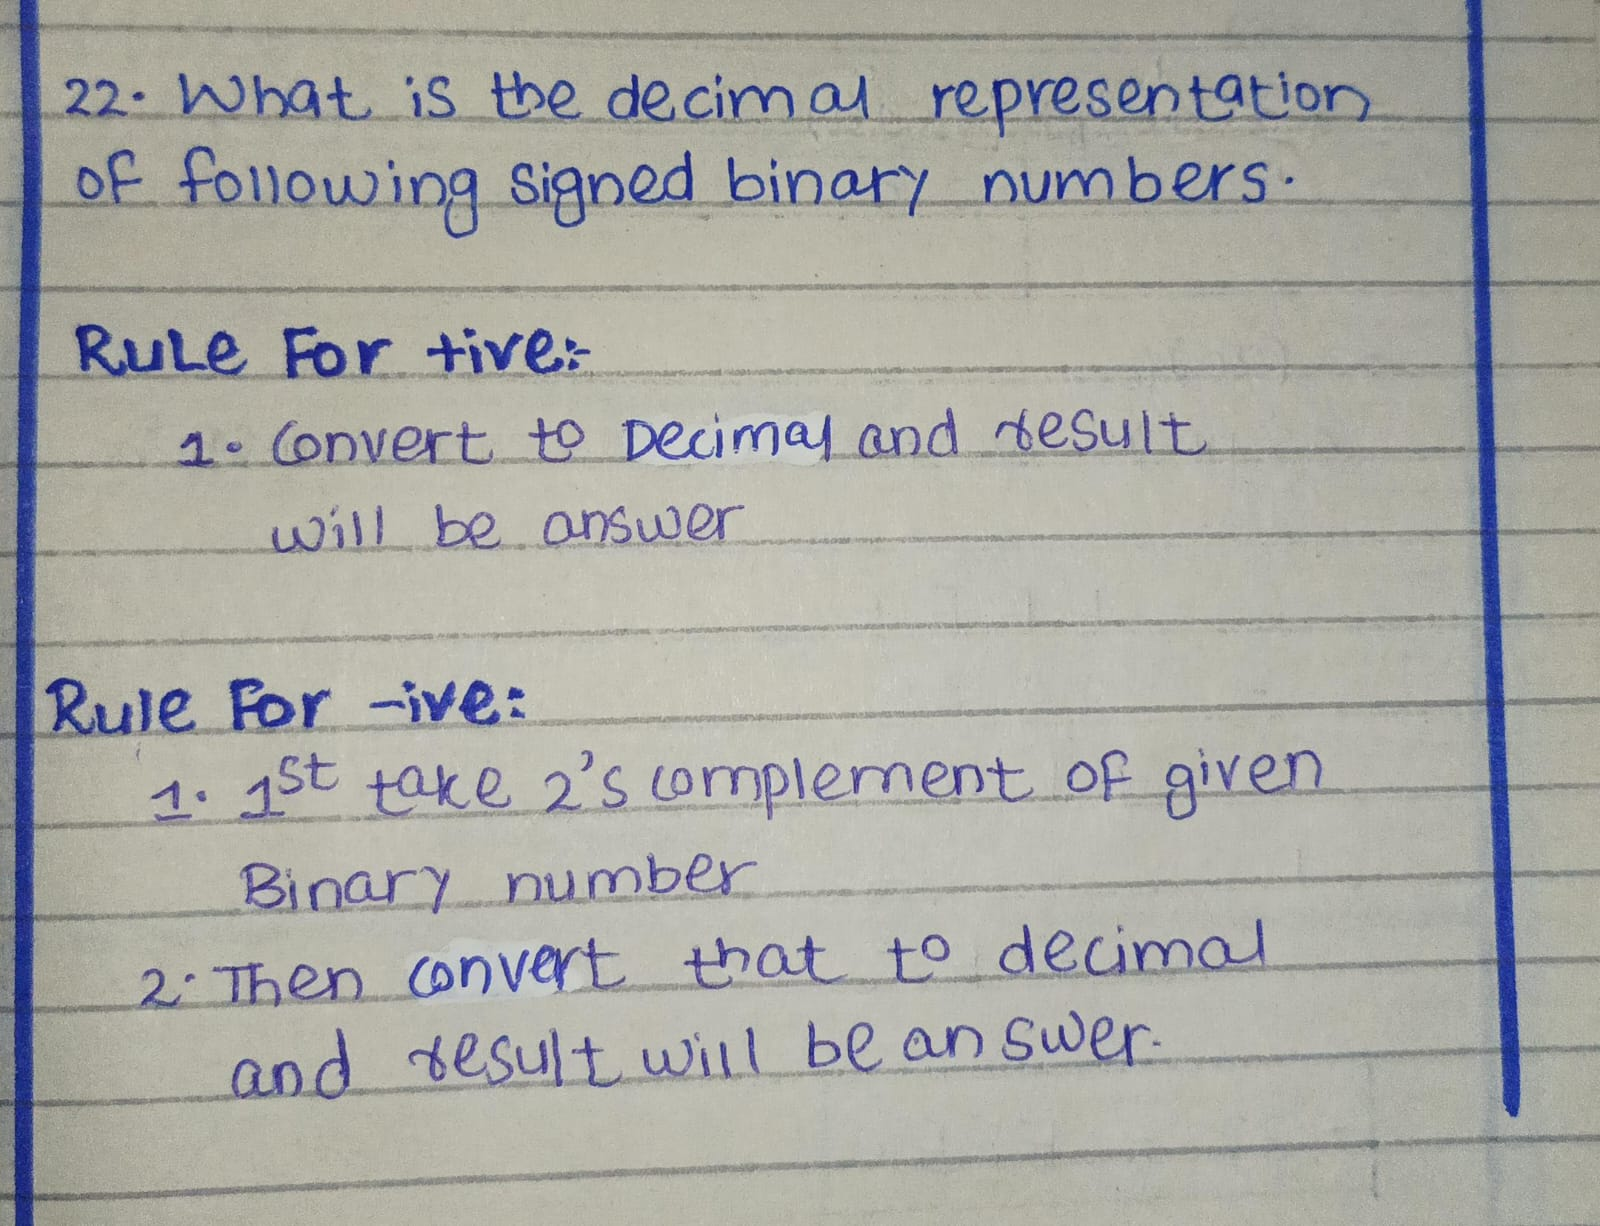 22. What is the decimal representation
of following signed binary numbers.
Rule For +ive:-
1. Convert to Decimal and result
will be answer
Rule For -ive:
1. 1st take 2's complement of given
Binary number
2. Then convert that to decimal
and result will be answer.